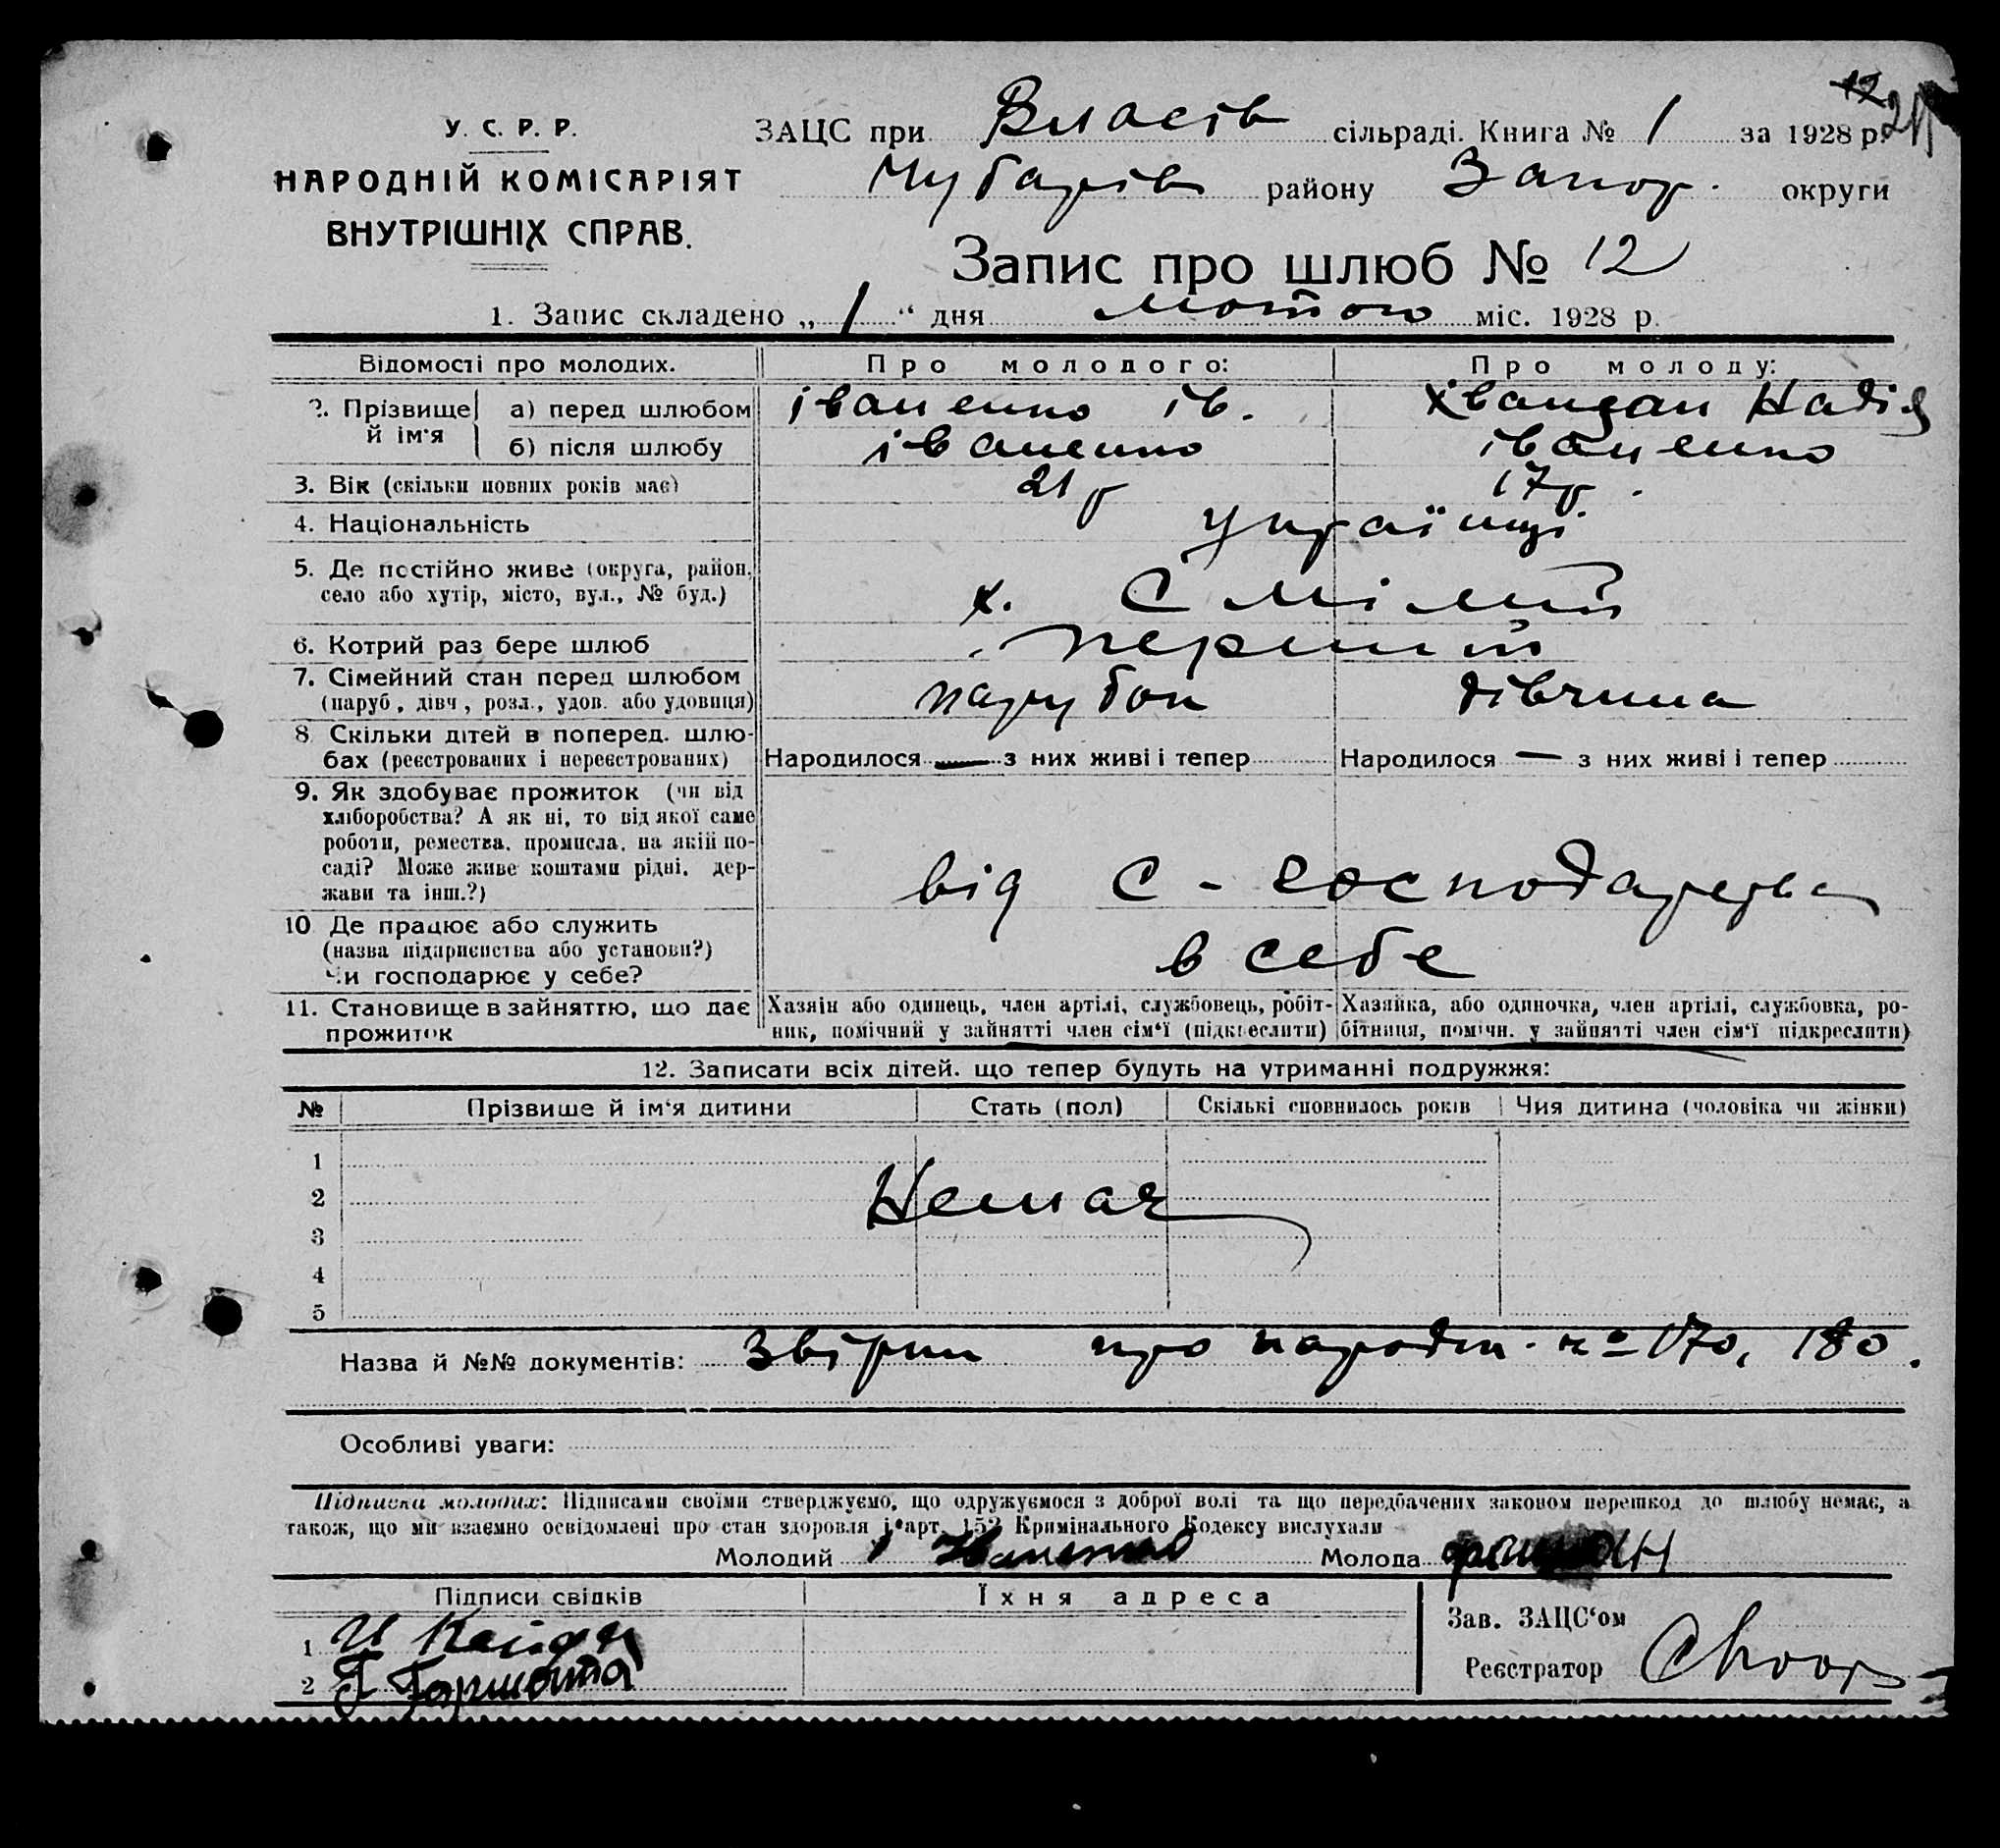 У. С. Р. Р.
НАРОДНІЙ КОМІСАРІЯТ
ВНУТРІШНІХ СПРАВ.
12
ЗАЦС при Власів сільраді. Книга № 1 за 1928 р.
Чубарів району Запор. округи
Запис про шлюб № 12
1. Запис складено „ 1 “ дня лютого міс. 1928 р.
Відомості про молодих. Про молодого: Про молоду:
2. Прізвище й ім'я а) перед шлюбом Іваненко Ів. Хвандан Надія
б) після шлюбу Іваненко Іваненко
3. Вік (скільки повних років має) 21 р 17 р.
4. Національність українці
5. Де постійно живе (округа, район,
село або хутір, місто, вул., № буд.) х. Смілий
6. Котрий раз бере шлюб перший
7. Сімейний стан перед шлюбом
(паруб., дівч., розл., удов. або удовиця) парубок дівчина
8 Скільки дітей в поперед. шлю-
бах (реєстрованих і нереєстрованих) Народилося — з них живі і тепер Народилося — з них живі і тепер
9. Як здобуває прожиток (чи від
хліборобства? А як ні, то від якої саме
роботи, ремества, промисла, на якій по-
саді? Може живе коштами рідні, дер-
жави та інш.?) від с-господарства
10 Де працює або служить
(назва підприємства або установи?)
Чи господарює у себе? в себе
11. Становище в зайняттю, що дає
прожиток
Хазяін або одинець, член артілі, службовець, робіт-
ник, помічний у зайнятті член сім‘ї (підкреслити)
Хазяйка, або одиночка, член артілі, службовка, ро-
бітниця, помічн. у зайнятті член сім‘ї підкреслити)
12. Записати всіх дітей, що тепер будуть на утриманні подружжя:
№ Прізвише й ім‘я дитини Стать (пол) Скількі сповнилось років Чия дитина (чоловіка чи жінки)
1
2 Немає
3
4
5
Назва й №№ документів: Звірки про народж. № 170, 180.
Особливі уваги:
Підписка молодих: Підписами своїми стверджуємо, що одружуємося з доброї волі та що передбачених законом перешкод до шлюбу немає, а
також, що ми взаємно освідомлені про стан здоровля і арт. 152 Кримінального Кодексу вислухали
Молодий Іваненко Молода
Підписи свідків Їхня адреса
1
2
Зав. ЗАЦС‘ом
Реєстратор